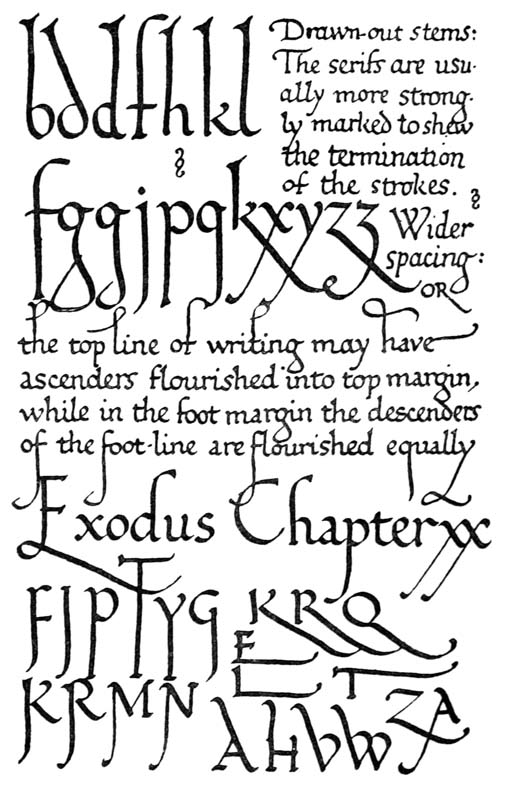 bdd fhkl
Drawn-out stems:
The serifs are usu-
ally more strong-
ly marked to shew
the termination
of the strokes.
fggjpqkxyzz
Wider
spacing:
OR
the top line of writing may have
ascenders flourished into top margin,
while in the foot margin the descenders
of the foot-line are flourished equally
Exodus Chapter xx
FJPTYG
KRQ
E
L T
KRMN
AHVW
ZA